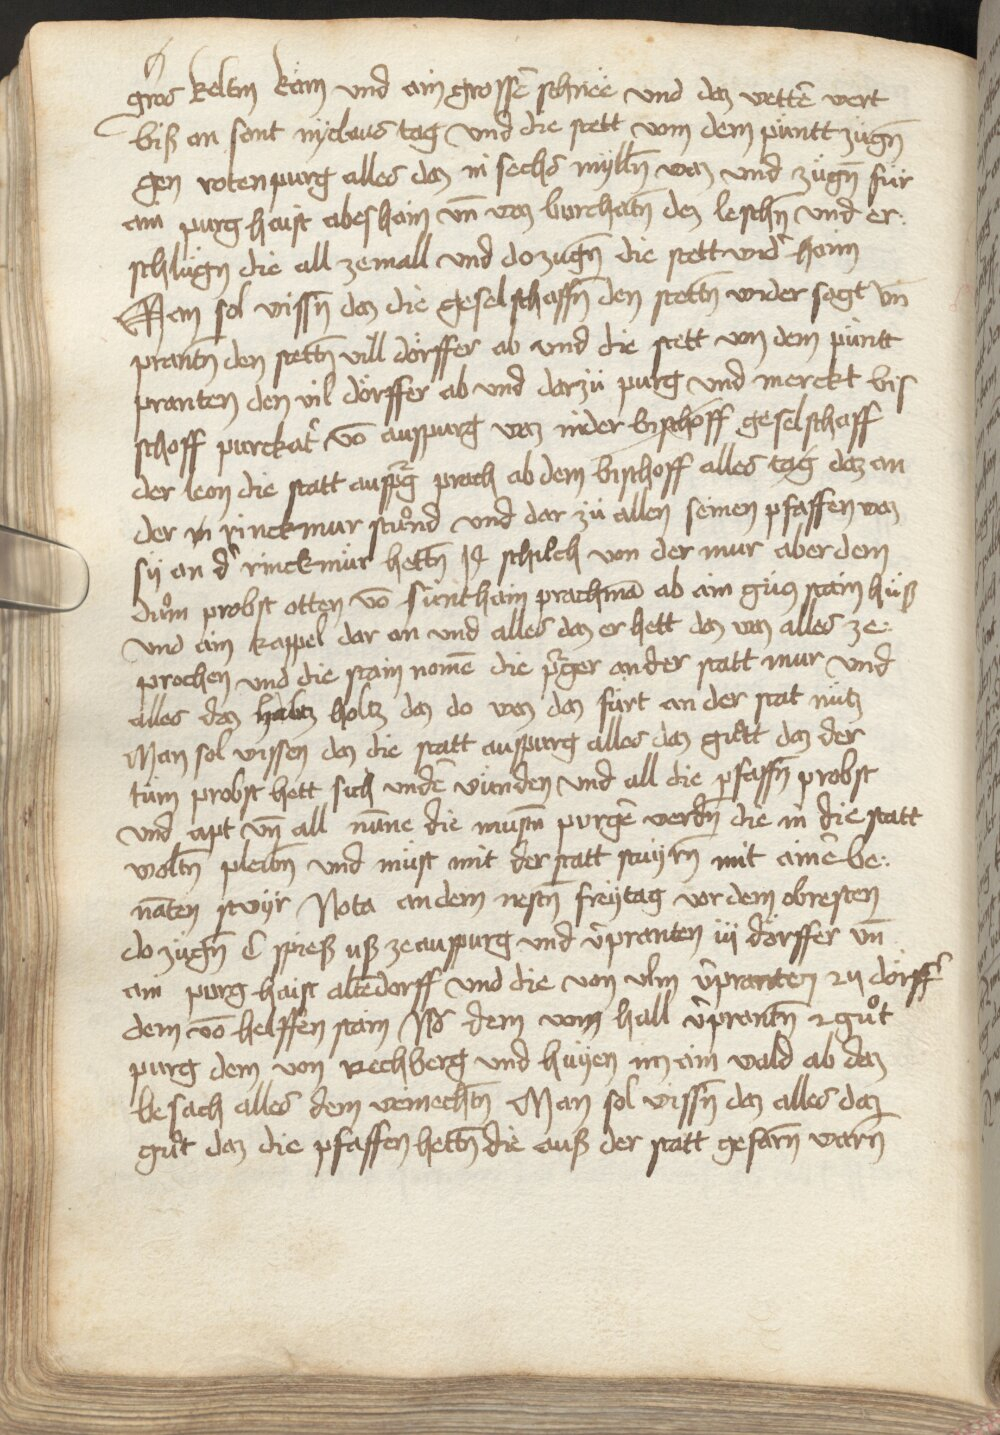 gros keltin kam und ain grossē schnee und daz wettē wert
biß an sant nyclaus tag und die stett vom dem püntt zugn̄
gen rotenpurg alles daz in sechs mylln̄ waz und zügn̄ für
ain purg haist abeshain vn̄ waz burchatn̄ dez leschn̄ und er
schlügn̄ die all zemall und do zugn̄ die stett wid̄ haim
Man sol wissn̄ daz die geselschaffn̄ den stettn̄ wider sagt vn̄
prantn̄ den stettn̄ vill dörffer ab und die stett von dem püntt
pranten den vil dörffer ab und darzü purg und merckt bis
schoff purckat̄ vō auspurg waz in der bischoff geselschaff
der leon die statt auspḡ prach ab dem bischoff alles tag daz an
der in rinckmur stuͦnd und dar zü allen seinen pfaffen waz
sy an d̄ rinckmur hettn̄ schilch von der mur aber dem
duͦm probst otten vō sunthain prachmā ab ain güs stain huß
und ain kappel dar an und alles daz er hett daz waz alles ze
prochen und die stain nomē die p̄ger an der statt mur und
alles daz holtz daz do waz daz fürt an der stat nütz
Man sol wissen daz die statt auspurg alles daz guͦtt daz der
tüm probst hett sich undē wunden und all die pfaffn̄ probst
und apt vn̄ all nūne die mustn̄ purgē werdn̄ die in die statt
woltn̄ pleibn̄ und müst mit der statt stuyrn̄ mit ainē be
nāten stuyr Nota an dem nestn̄ freytag vor dem obresten
do zugn̄ C spieß uß ze auspurg und v̄pranten iij dörffer vn̄
ain purg haist altēdorff und die von ulm v̄pranten dörff̄
dem vō helffen stain dem vom hall v̄prantn̄ guͦt
purg dem von rechberg und huyen im ain wald ab daz
besach alles dem weinechtn̄ Man sol wissn̄ daz alles daz
guͦt daz die pfaffen hettn̄ die auß der statt gefarn̄ warn̄